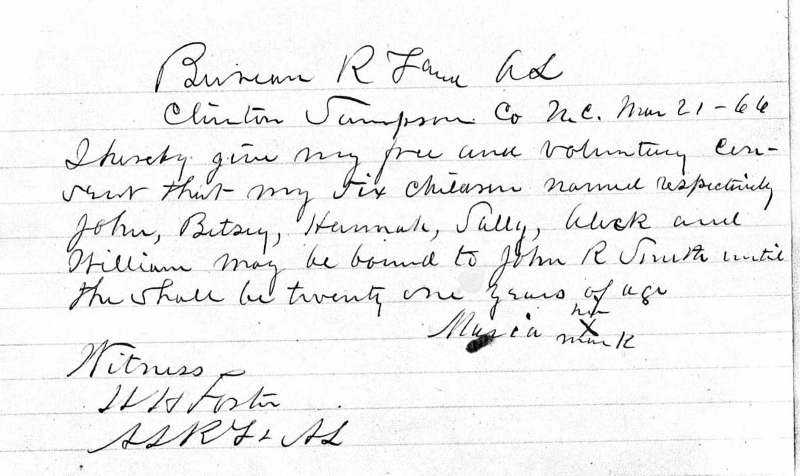 Bureau R F and AL
Clinton Sampson Co N.C. Mar 21-66
I hereby give my free and voluntary con-
sent that my six children named respectively
John, Betsey, Hannah, Sally, Alick and
William may be bound to John R Smith until
the shall be twenty one years of age
her
Maria X
mark
Witness
H H Foster
A S R F & AL